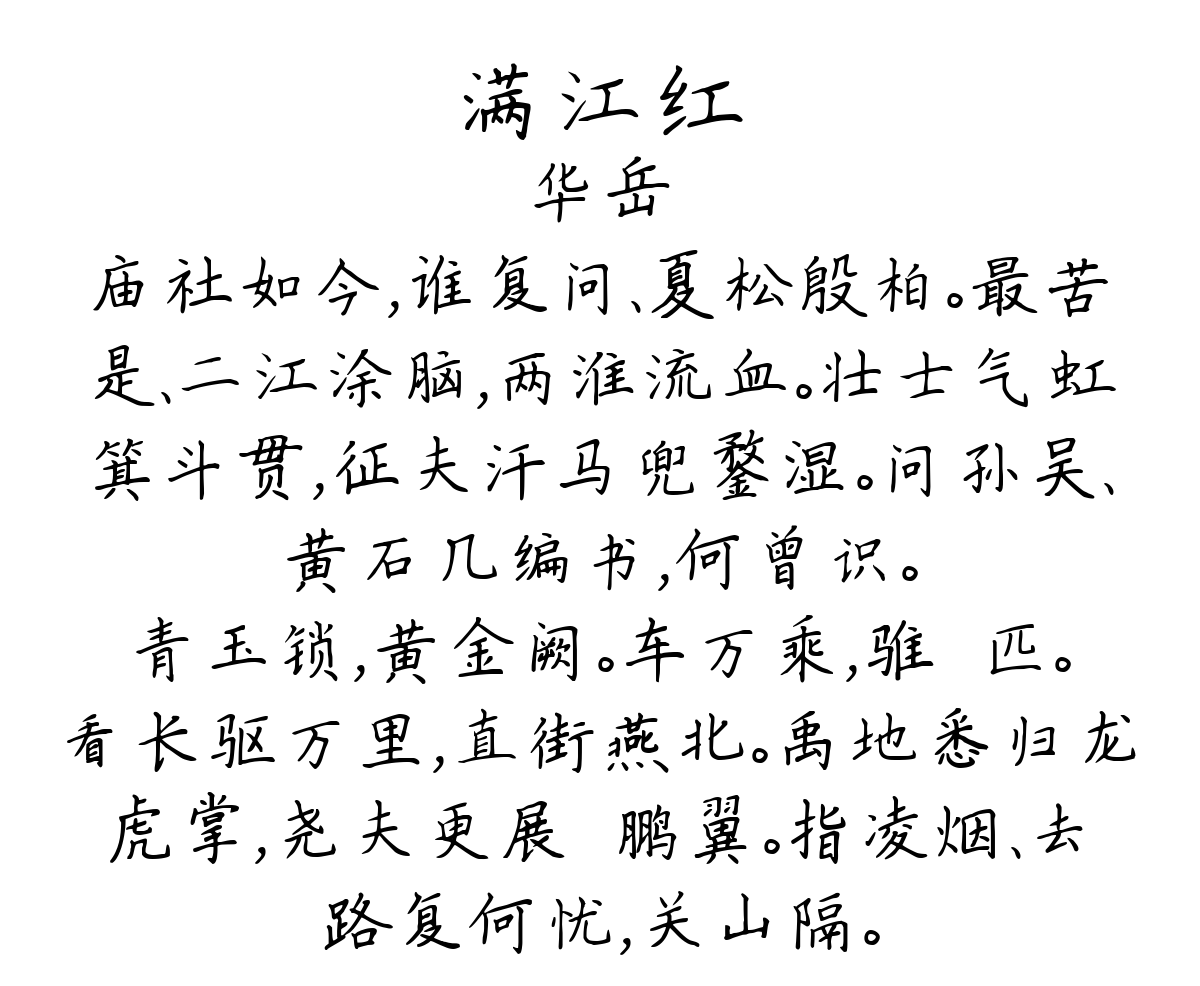 满江红
华岳
庙社如今,谁复问、夏松殷柏。最苦
是、二江涂脑,两淮流血。壮士气虹
箕斗贯,征夫汗马兜鍪湿。问孙吴、
黄石几编书,何曾识。
青玉锁,黄金阙。车万乘,骓 匹。
看长驱万里,直街燕北。禹地悉归龙
虎掌,尧夫更展 鹏翼。指凌烟、去
路复何忧,关山隔。